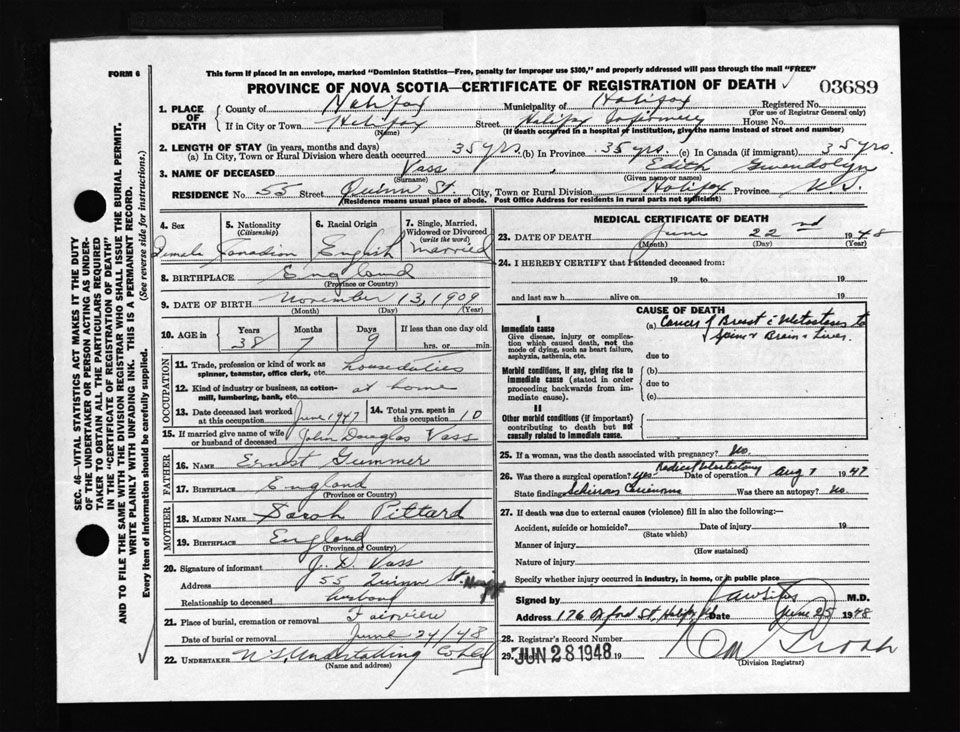 FORM 6
This form if placed in an envelope, marked "Dominion Statistics—Free, penalty for improper use $300," and properly addressed will pass through the mail "FREE"
PROVINCE OF NOVA SCOTIA—CERTIFICATE OF REGISTRATION OF DEATH 03689
SEC. 46—VITAL STATISTICS ACT MAKES IT THE DUTY
OF THE UNDERTAKER OR PERSON ACTING AS UNDER-
TAKER TO OBTAIN ALL THE PARTICULARS REQUIRED
IN THE "CERTIFICATE OF REGISTRATION OF DEATH"
AND TO FILE THE SAME WITH THE DIVISION REGISTRAR WHO SHALL ISSUE THE BURIAL PERMIT.
WRITE PLAINLY WITH UNFADING INK. THIS IS A PERMANENT RECORD.
Every item of information should be carefully supplied. (See reverse side for instructions.)
1. PLACE OF DEATH County of Halifax Municipality of Halifax Registered No.
(For use of Registrar General only)
If in City or Town Halifax Street Halifax Infirmary House No.
(Name) (If death occurred in a hospital or institution, give the name instead of street and number)
2. LENGTH OF STAY (in years, months and days)
(a) In City, Town or Rural Division where death occurred 35 yrs. (b) In Province 35 yrs. (c) In Canada (if immigrant) 35 yrs.
3. NAME OF DECEASED Vass, Edith Gwendolyn
(Surname) (Given name or names)
RESIDENCE No. 55 Street Quinn St City, Town or Rural Division Halifax Province N.S.
(Residence means usual place of abode. Post Office Address for residents in rural parts not sufficient)
4. Sex 5. Nationality (Citizenship) 6. Racial Origin 7. Single, Married, Widowed or Divorced (write the word)
Female Canadian English Married
8. BIRTHPLACE England
(Province or Country)
9. DATE OF BIRTH November 13, 1909
(Month) (Day) (Year)
10. AGE in Years Months Days If less than one day old
38 7 9 hrs. or min.
OCCUPATION
11. Trade, profession or kind of work as spinner, teamster, office clerk, etc. housduties
12. Kind of industry or business, as cotton-mill, lumbering, bank, etc. at home
13. Date deceased last worked at this occupation June 1947 14. Total yrs. spent in this occupation 10
15. If married give name of wife or husband of deceased John Douglas Vass
FATHER
16. NAME Ernest Gummer
17. BIRTHPLACE England
(Province or Country)
MOTHER
18. MAIDEN NAME Sarah Pittard
19. BIRTHPLACE England
(Province or Country)
20. Signature of informant J. D. Vass
Address 55 Quinn St.
Relationship to deceased husband
21. Place of burial, cremation or removal Fairview
Date of burial or removal June 24/48
22. UNDERTAKER N.S. Undertaking Co Ltd
(Name and address)
MEDICAL CERTIFICATE OF DEATH
23. DATE OF DEATH June 22nd 1948
(Month) (Day) (Year)
24. I HEREBY CERTIFY that I attended deceased from:
19 to 19
and last saw h alive on 19
CAUSE OF DEATH
I
Immediate cause
Give disease, injury or complication which caused death, not the mode of dying, such as heart failure, asphyxia, asthenia, etc.
(a) Cancer of Breast c Metastasis to
Spine & Brain & Liver.
due to
Morbid conditions, if any, giving rise to immediate cause (stated in order proceeding backwards from immediate cause).
(b)
due to
(c)
II
Other morbid conditions (if important) contributing to death but not causally related to immediate cause.
25. If a woman, was the death associated with pregnancy? No.
26. Was there a surgical operation? Yes Radical Mastectomy Date of operation Aug 7 1947
State findings Schirrous Carcinoma Was there an autopsy? No
27. If death was due to external causes (violence) fill in also the following:—
Accident, suicide or homicide? Date of injury 19
(State which)
Manner of injury
(How sustained)
Nature of injury
Specify whether injury occurred in industry, in home, or in public place
Signed by M.D.
Address 176 Oxford St, Halifax Date June 25 1948
28. Registrar's Record Number
29. JUN 28 1948 19
(Division Registrar)